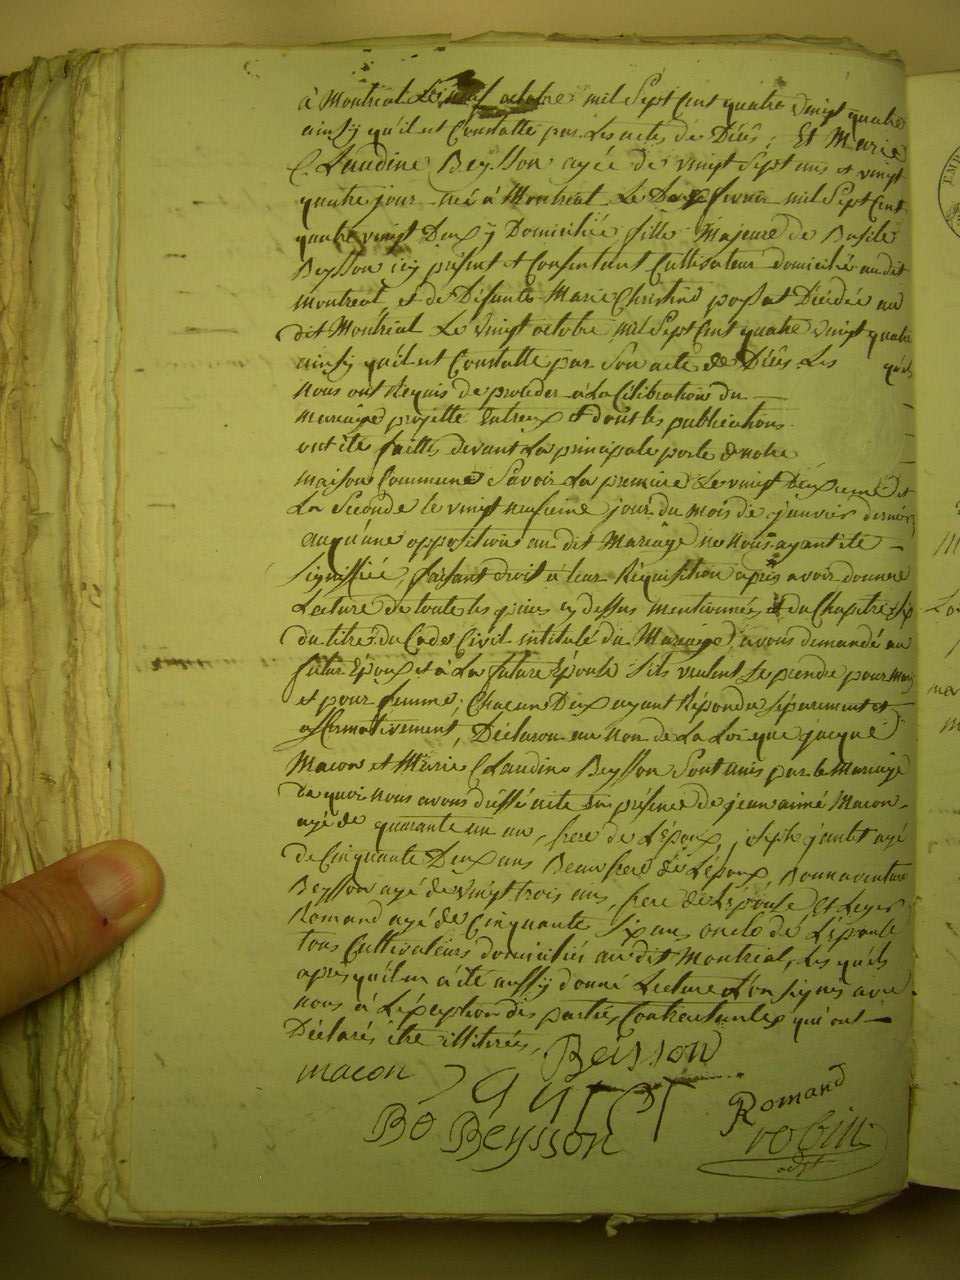 à Montréal Le neuf octobre mil Sept Cent quatre vingt quatre
ainsy qu'il est Constatté par Les actes de Décès; Et Marie
Claudine Beysson agée de vingt Sept ans et vingt
quatre jour née à Montréal Le Douze fevrier mil Sept Cent
quatre vingt Deux y Domiciliée fille Majeure de Basile
Beysson icy présent et Consentant Cultivateur domicilié au dit
Montréal et de Défunte Marie Christine possat Décédée au
dit Montréal Le vingt octobre mil Sept Cent quatre vingt quatre
ainsy qu'il est Constatté par Son acte de Décès Les quels
nous ont Requis de proceder à La Célébration du
Mariage projetté entreux et dont les publications
ont été faittes devant La principale porte de notre
maison Commune Savoir La premiere Le vingt Deuxieme et
La Seconde le vingt neufieme jour du mois de janvier dernier
auqu'une opposition au dit Mariage ne Nous ayant été
Signiffiée, faisant droit à leur Requisition après avoir donné
Lecture de toutes les pieces cy dessus mentionnées et du Chapitre
du titre du Code Civil intitulé du Mariage, avons demandé au
futur Epoux et à La future Epouse S'ils veulent Se prendre pour mary
et pour femme; Chacun Deux ayant Répondu Séparement et
affirmativement, Déclarons au Nom de La Loi que jacque
Macon et Marie Claudine Beysson Sont unis par le Mariage
de quoi Nous avons dressé acte en présence de jean aimé Macon
agé de quarante un an, frere de L'époux, joseph jantet agé
de Cinquante Deux ans Beau frere de L'époux, Bonnaventure
Beysson agé de vingt trois ans, frere de L'épouse et Leger
Romand agé de Cinquante Six ans oncle de L'épouse
tous Cultivateurs domiciliés au dit Montréal, Les quels
apres qu'il en a été aussy donné Lecture L'on Signés avec
nous à L'éxception des parties Contractantes qui ont
Déclarés être illitérées,
Beisson
macon
Romand
BO Beysson
robin
adjt